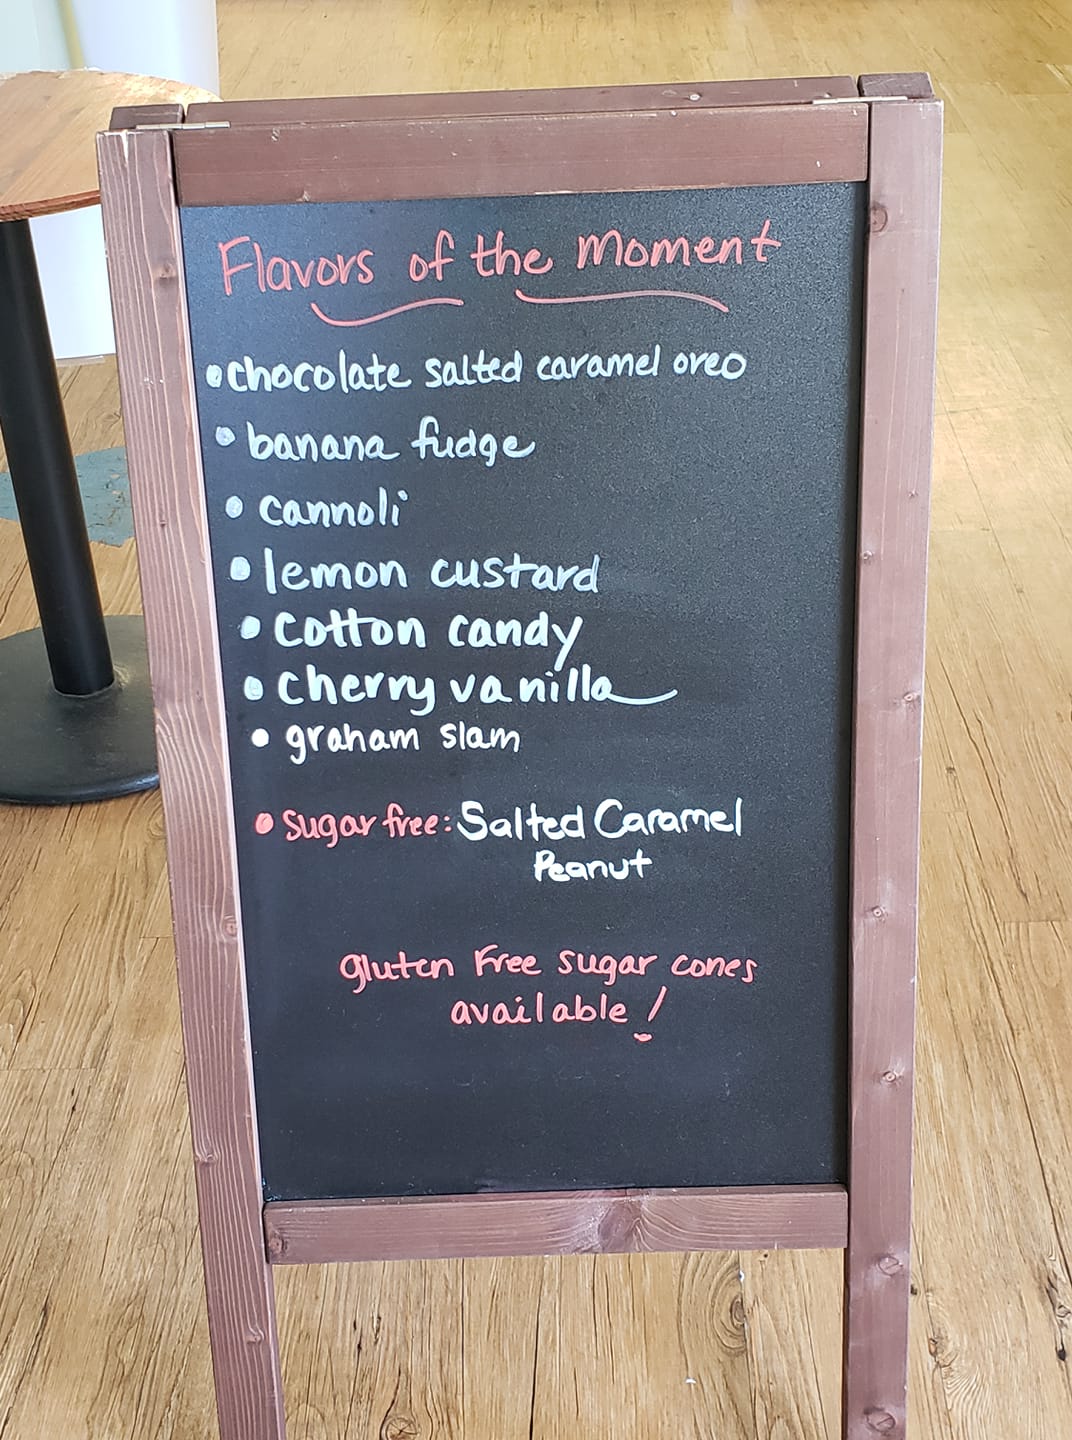 Flavors of the Moment
• chocolate salted caramel oreo
• banana fudge
• cannoli
• lemon custard
• Cotton candy
• Cherry vanilla
• graham slam
• Sugar free: Salted Caramel
Peanut
gluten Free sugar cones
available!